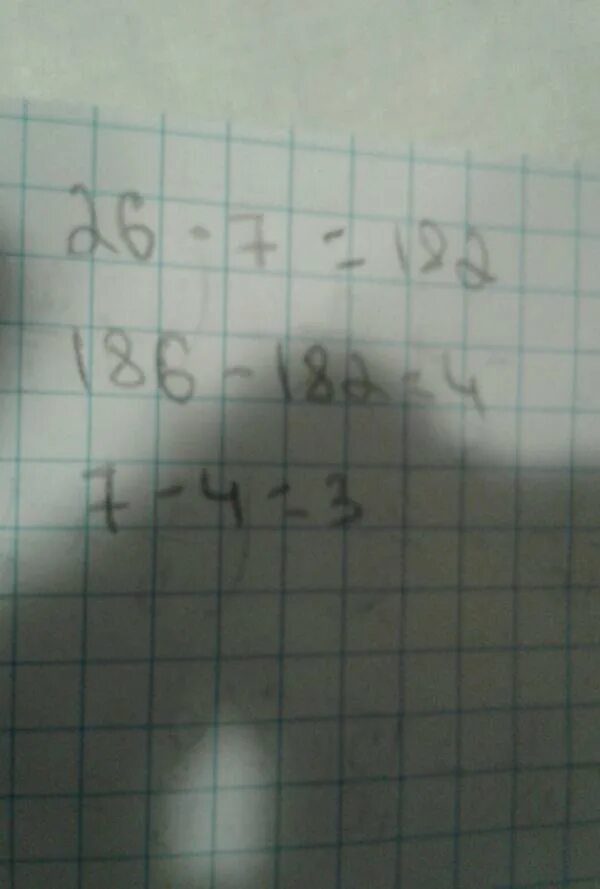 26 · 7 = 182
186 - 182 = 4
7 - 4 = 3